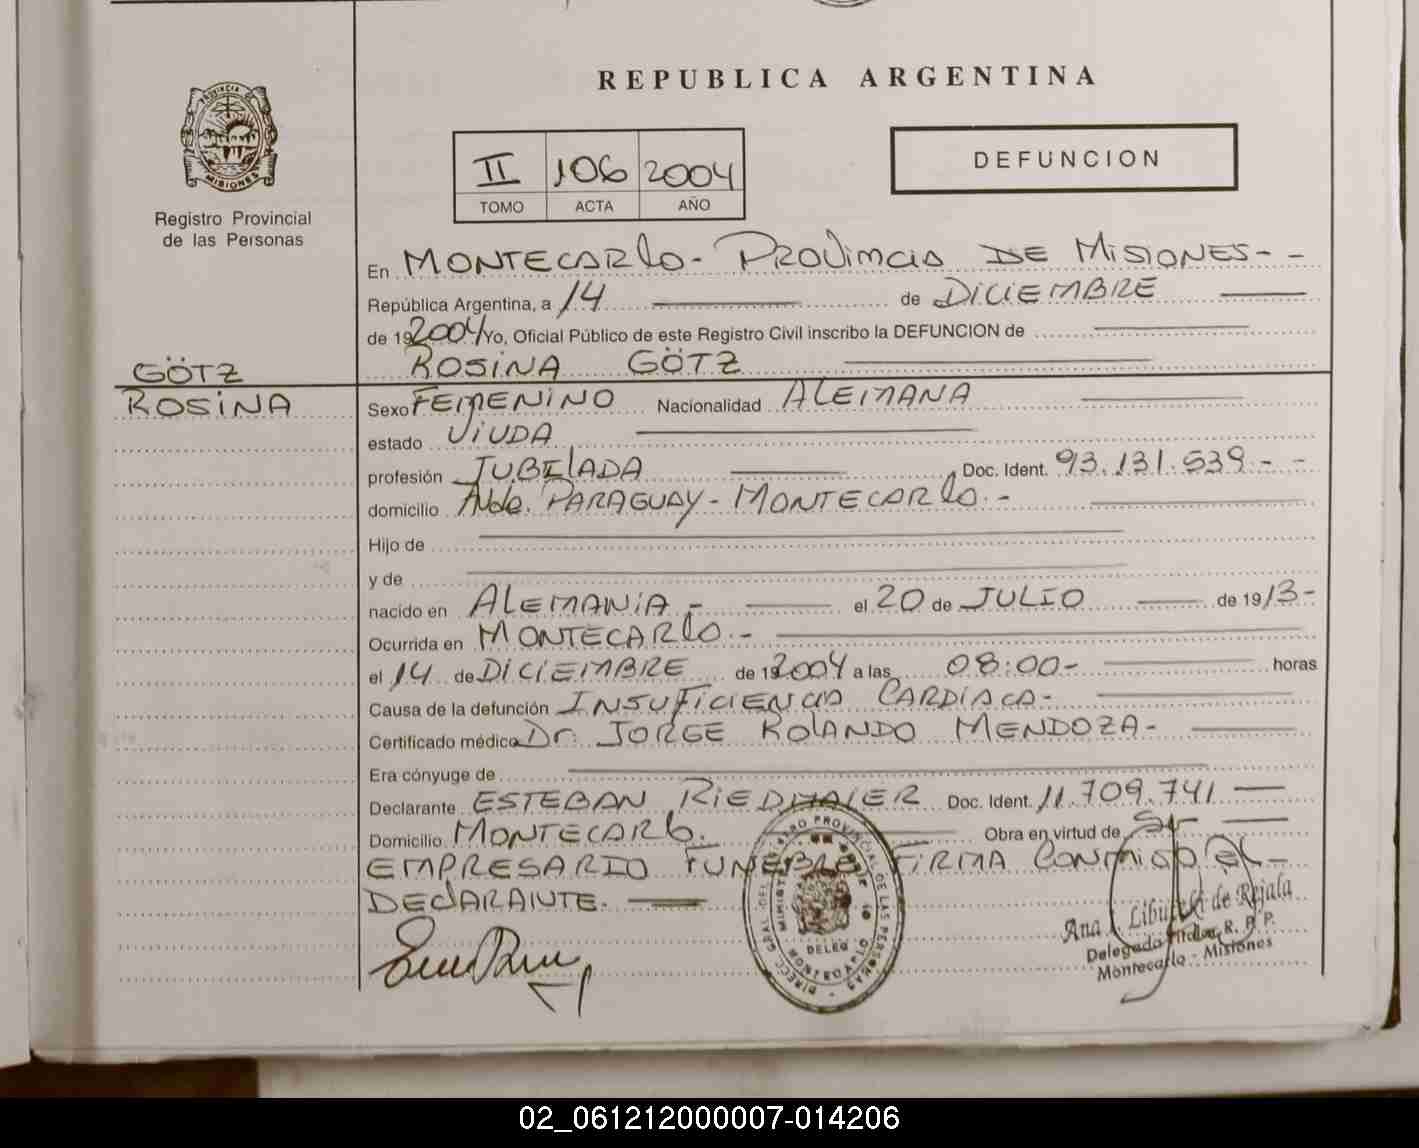 REPUBLICA ARGENTINA
PROVINCIA DE
MISIONES
II 106 2004
TOMO ACTA AÑO
DEFUNCION
Registro Provincial
de las Personas
En MONTECARLO - PROVINCIA DE MISIONES - -
República Argentina, a 14 de DICIEMBRE
de 19 2004 Yo, Oficial Público de este Registro Civil inscribo la DEFUNCION de
GÖTZ
ROSINA GÖTZ
ROSINA
Sexo FEMENINO Nacionalidad ALEMANA
estado VIUDA
profesión JUBILADA Doc. Ident. 93.131.539 - -
domicilio Avda. PARAGUAY - MONTECARLO. -
Hijo de
y de
nacido en ALEMANIA - el 20 de JULIO de 19 13 -
Ocurrida en MONTECARLO. -
el 14 de DICIEMBRE de 19 2004 a las 08:00 - horas
Causa de la defunción INSUFICIENCIA CARDIACA -
Certificado médico Dr. JORGE ROLANDO MENDOZA -
Era cónyuge de
Declarante ESTEBAN RIEDMAIER Doc. Ident. 11.709.741
Domicilio MONTECARLO. Obra en virtud de Sr
EMPRESARIO FUNEBRE FIRMA CONMIGO EL -
DECLARANTE.
DIREC. GRAL. DEL REGISTRO PROVINCIAL DE LAS PERSONAS
DELEG
MONTECARLO
Ana de Rejala
Delegada Titular R. P. P.
Montecarlo - Misiones
02_061212000007-014206